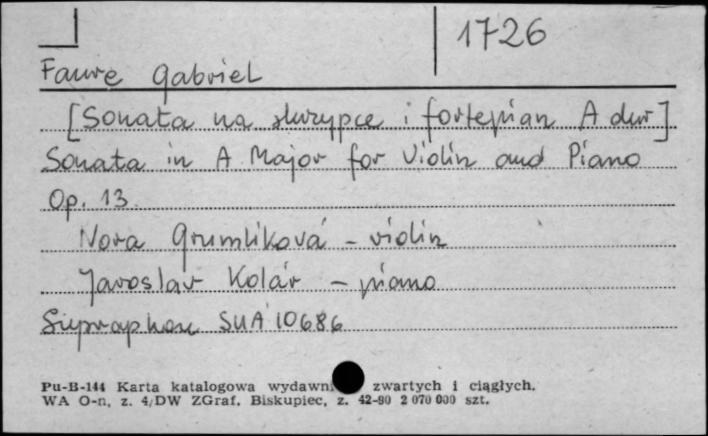 1726
Faure Gabriel
[Sonata na skrzypce i fortepian A dur]
Sonata in A Major for Violin and Piano
Op. 13
Nora Grumliková - violin
Jaroslav Kolár - piano
Supraphon SUA 10686
Pu-B-144 Karta katalogowa wydawni zwartych i ciągłych.
WA O-n, z. 4/DW ZGraf. Biskupiec, z. 42-80 2 070 000 szt.